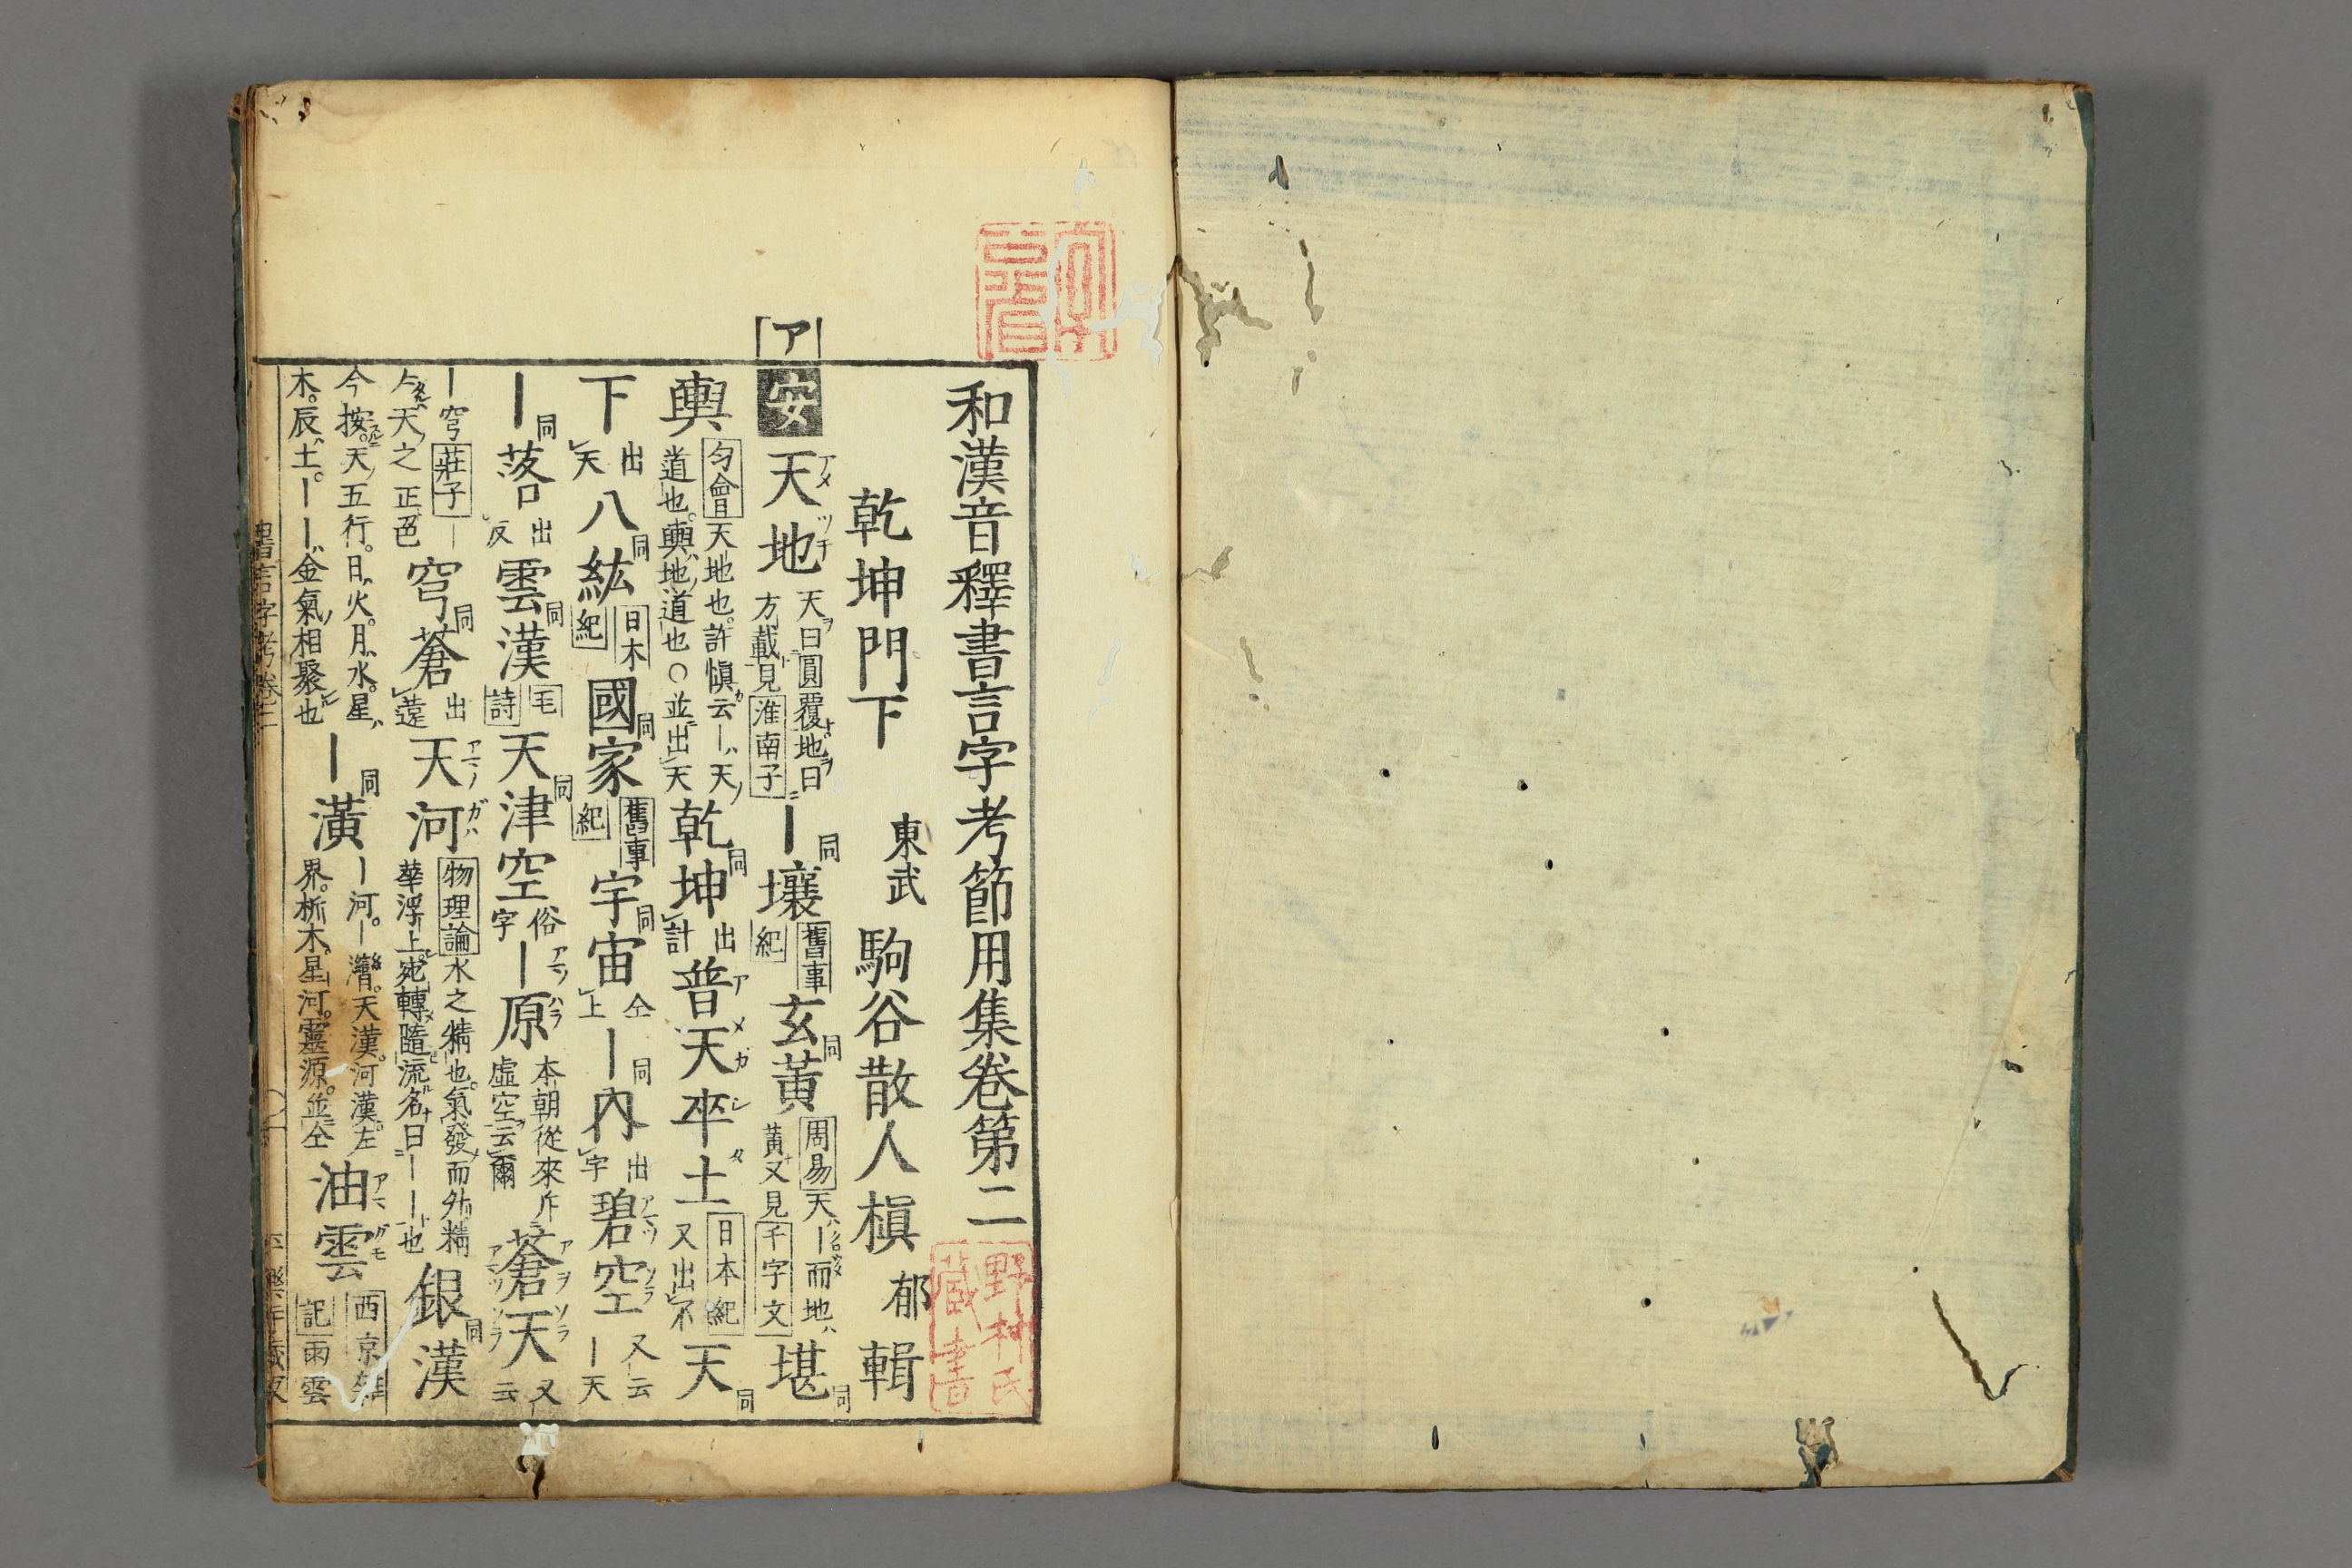 和漢音釋書言字考節用集卷第二
乾坤門下 東武 駒谷散人 槙 郁 輯
ア
安 天地 アメツチ 天曰圓覆地曰方載見淮南子 ―壤 同 舊事紀 玄黃 同 周易天ハ―而地ハ黃又見千字文 堪 同
輿 匀會天地也許愼云―ハ天ノ道也輿ハ地ノ道也○並出天 乾坤 同 出計 普天卒土 アメカシタ 日本紀又出不 天 同
下 出天 八紘 同 日本紀 國家 同 舊事紀 宇宙 同 仝上 ―內 同 出宇 碧空 アヲソラ 又云―天
―落 同 出反 雲漢 同 毛詩 天津空 同 俗字 ―原 アマノハラ 本朝從來斥虛空云爾 蒼天 アヲソラ 又云
―穹 莊子―天之正色 穹蒼 同 出遠 天河 アマノガハ 物理論水之精也氣發而外精華浮上宛轉隨流名曰――也 銀漢 同
今按天五行日火月水星木辰土――金氣相聚也 ―潢 同 ―河―潛天漢河漢左界析木星河靈源並仝 油雲 アマグモ 西京雜記雨雲
書言字考卷二
野村氏藏書